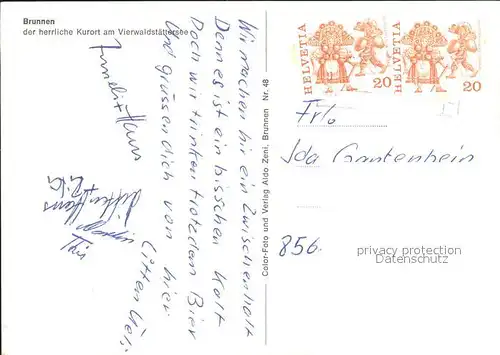 Brunnen
der herrliche Kurort am Vierwaldstättersee
Wir machen hir ein Zwischenhalt
Denn es ist ein bisschen Kalt
Doch wir trinken trotzdem Bier
Und grüssen dich von hier
Hans
Color-Foto und Verlag Aldo Zeni, Brunnen Nr. 48
HELVETIA 20
HELVETIA 20
Frl.
Ida Gantenbein
856
privacy protection
Datenschutz